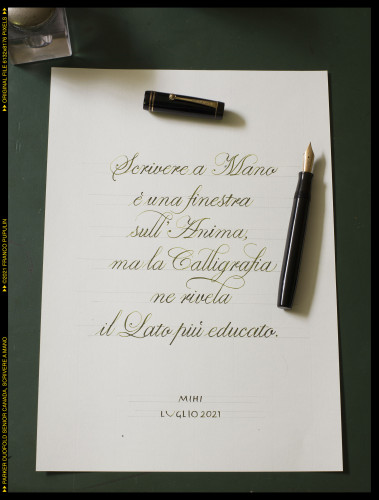 Scrivere a Mano
è una finestra
sull'Anima,
ma la Calligrafia
ne rivela
il Lato più educato.
MIHI
LUGLIO 2021
▸▸ ORIGINAL FILE 6132x8176 PIXELS
▸▸ ©2021 FRANCO PUPULIN
▸▸ PARKER DUOFOLD SENIOR CANADA, SCRIVERE A MANO